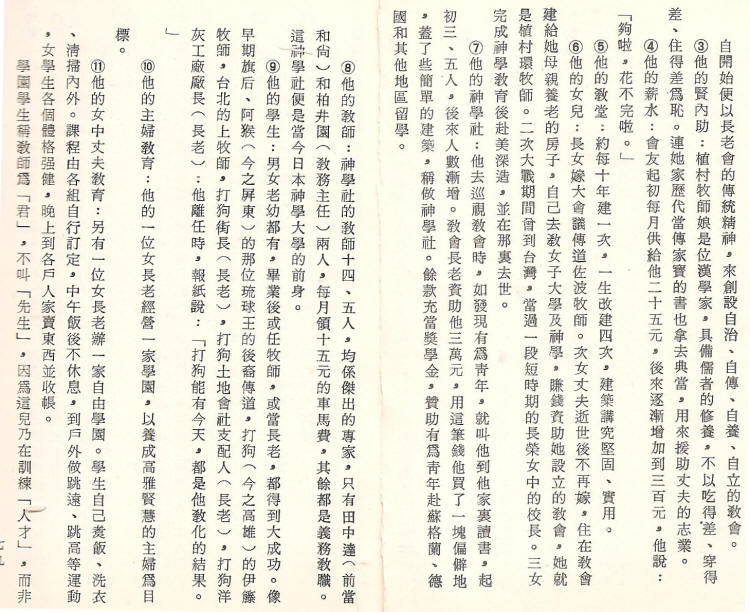 自開始便以長老會的傳統精神，來創設自治、自傳、自養、自立的敎會。
③他的賢內助：植村牧師娘是位漢學家，具備儒者的修養，不以吃得差、穿得
差、住得差爲恥。連她家歷代當傳家寶的書也拿去典當，用來援助丈夫的志業。
④他的薪水：會友起初每月供給他二十五元，後來逐漸增加到三百元，他說：
「夠啦，花不完啦。」
⑤他的敎堂：約每十年建一次，一生改建四次，建築講究堅固、實用。
⑥他的女兒：長女嫁大會議傳道佐波牧師。次女丈夫逝世後不再嫁，住在敎會
建給她母親養老的房子，自己去敎女子大學及神學，賺錢資助她設立的敎會，她就
是植村環牧師。二次大戰期間曾到台灣，當過一段短時期的長榮女中的校長。三女
完成神學敎育後赴美深造，並在那裏去世。
⑦他的神學社：他去巡視敎會時，如發現有爲靑年，就叫他到他家裏讀書，起
初三、五人，後來人數漸增。敎會長老資助他三萬元，用這筆錢他買了一塊偏僻地
，蓋了些簡單的建築，稱做神學社。餘款充當獎學金，贊助有爲靑年赴蘇格蘭、德
國和其他地區留學。
⑧他的敎師：神學社的敎師十四、五人，均係傑出的專家，只有田中達（前當
和尙）和柏井園（敎務主任）兩人，每月領十五元的車馬費，其餘都是義務敎職。
這神學社便是當今日本神學大學的前身。
⑨他的學生：男女老幼都有，畢業後或任牧師，或當長老，都得到大成功。像
早期旗后、阿猴（今之屏東）的那位琉球王的後裔傳道，打狗（今之高雄）的伊籐
牧師，台北的上牧師，打狗街長（長老），打狗土地會社支配人（長老），打狗洋
灰工廠廠長（長老）：他離任時，報紙說：「打狗能有今天，都是他敎化的結果。
」
⑩他的主婦敎育：他的一位女長老經營一家學園，以養成高雅賢慧的主婦爲目
標。
⑪他的女中丈夫敎育：另有一位女長老辦一家自由學園。學生自己煑飯、洗衣
、淸掃內外。課程由各組自行訂定，中午飯後不休息，到戶外做跳遠、跳高等運動
，女學生各個體格强健，晚上到各戶人家賣東西並收帳。
學園學生稱敎師爲「君」，不叫「先生」，因爲這兒乃在訓練「人才」，而非